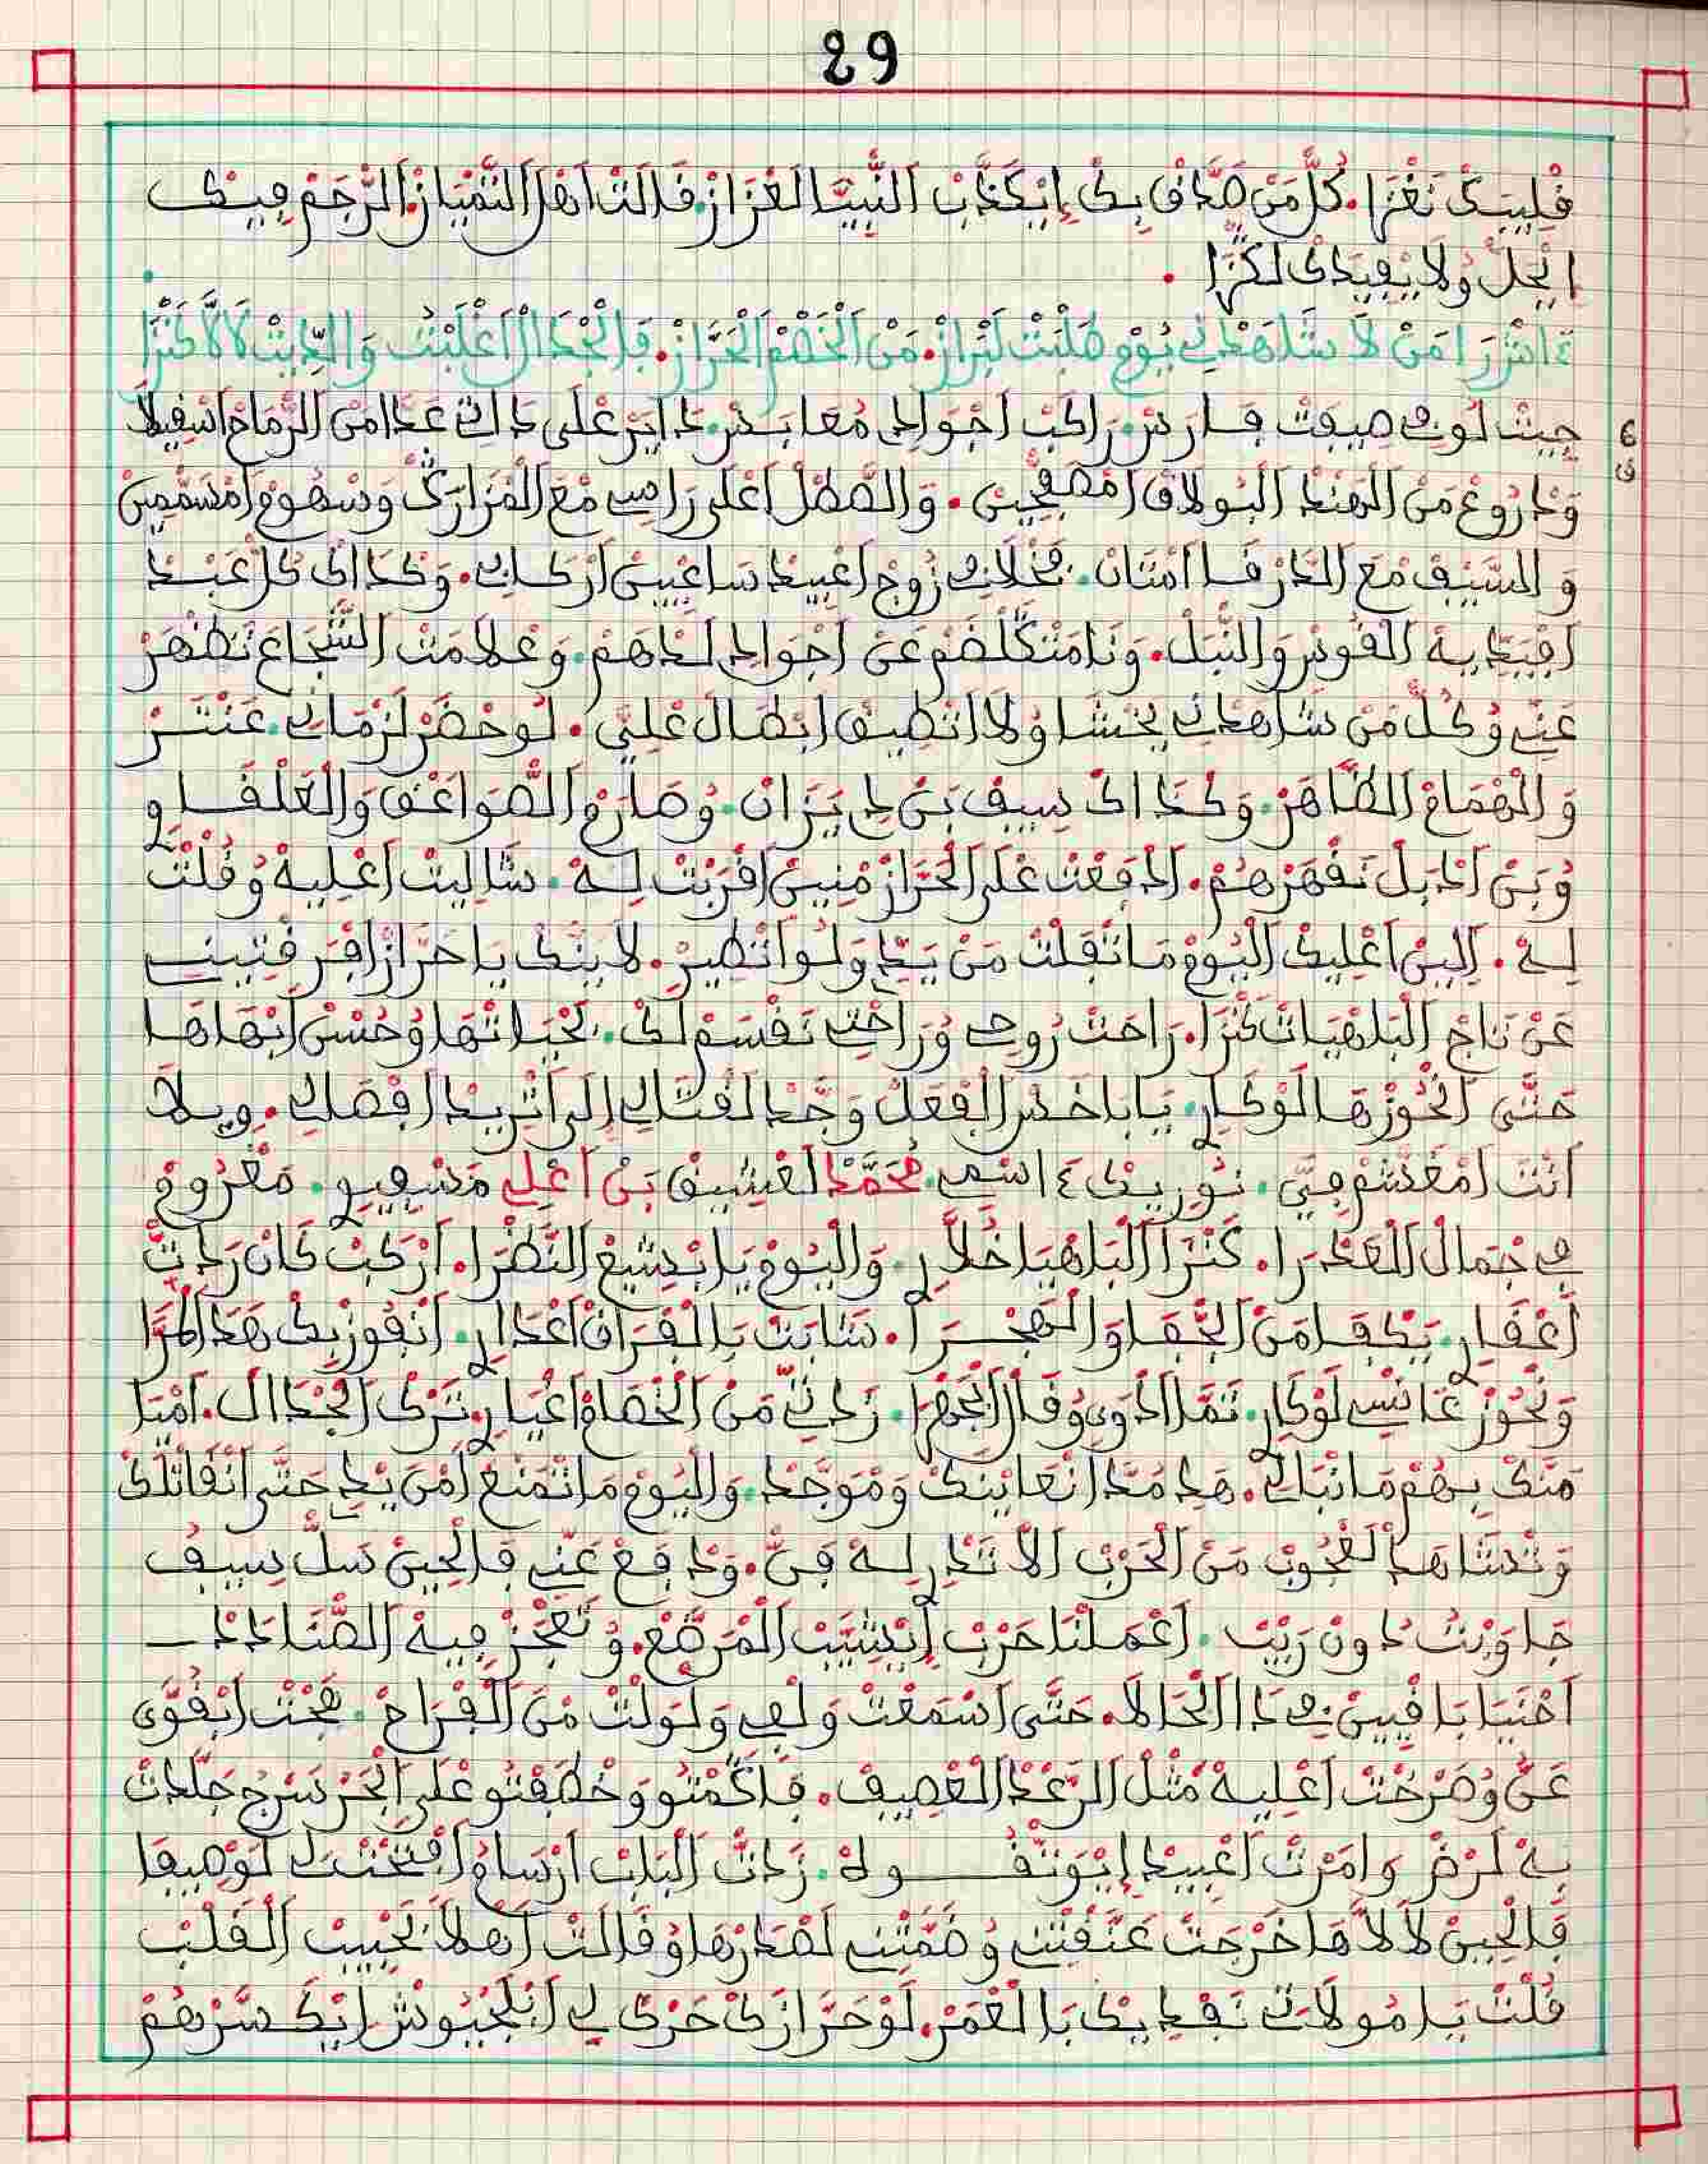 29
فليبك نغزا. كل من صداف بك إيكذب النبيا الغزاز. فالت اهل التمياز. الرجم فيك
ايحل ولا يفيدك لكزا.
امن لا شاهدني يوم هلبت لبراز. من الخصم الحراز. فالجدال اغلبت والديت لالا كنزا
6
ف
جيت لوف صيفت فارس. راكب اجوادي معا بدر. دايرعلى ذاتي عدا من الرماح اثفيلا
ودروع من الهند البولاد امصفحين. والصطل اعلى راسي مع المزارك وسهوم امسممين
والسيف مع الدرفا امتان. بخلاف زوج اعبيد ساعيين اركابي. وكذاك كل عبد
افيديه الفوس والنبل. ونا متكلضم عن اجوادي لدهم. وعلامت الشجاع تظهر
عني وكل من شاهدني يخشاو لا اتطيق ابطال علي. لو حضر لزماني. عنتر
والهمام الظاهر. وكذاك سيف بن دي يزان. وصارم الصواعق والعلفاو
وبن اذبل نفهرهم. ادفعت على الحراز منين افربت له. شاليت اعليه وفلت
له. البين اعليك اليوم ما تفلت من يدي ولو اتطير. لا بنك يا حراز افرفتيني
عن تاج البلهيات كنزا. راحت روحي وراحتي نفسم لك. بحياتها وحسن ابهاها
حتى انحوزها لوكار. يا باخس الفعل وجد لفتالي إلى اتريد افصالي. ويلا
انت امغشم في. نوريك اسمي. محمد لعشيق بن اعلي مسفيو. مغروم
في جمال العدرا. كنزا الباهيا خلار. واليوم يا بشيع النظرا. اركب كان ردت
اعفار. يكفا من الجفا والهجرا. شابت بالفراق اعدار. انفوز بك هذا المرا
ونحوز غانسي لوكار. تما ادوي وفال الجهرا. زدني من الخصام اعيار. ترك الجدال. اميا
منك بهم ما نبالي. هذ مدا نعاينك وموجد. واليوم ما تمنع من يدي حتى انفاتلك
وتشاهد لعجوب من الحرب الا تدار له في. ودفع عني فالحين سل سيف
جاوبت دون ريب. اعملنا حرب ايشيب المرضع. وتعجز فيه الصناددا
احنيا بافيين في ذا الحالا. حتى اسمعت ولفي ولولت من الفراح. بحت ايفوى
عن وصرخت اعليه مثل الرعد لعصيف. فاكمتو وخطفتو على الحر سرج جلدت
به لرض وامرت اعبيد إيوتفوله. زدت الباب ارسام افتحت لي لوصيفا
فالحين لالا ها خرجت عنفتني وضمتني لصدرها وفالت اهلا بحبيب الفلب
فلت يا مولاتي نفديك بالعمر. لو حرازك حرك لي ابلجيوش ايكسرهم